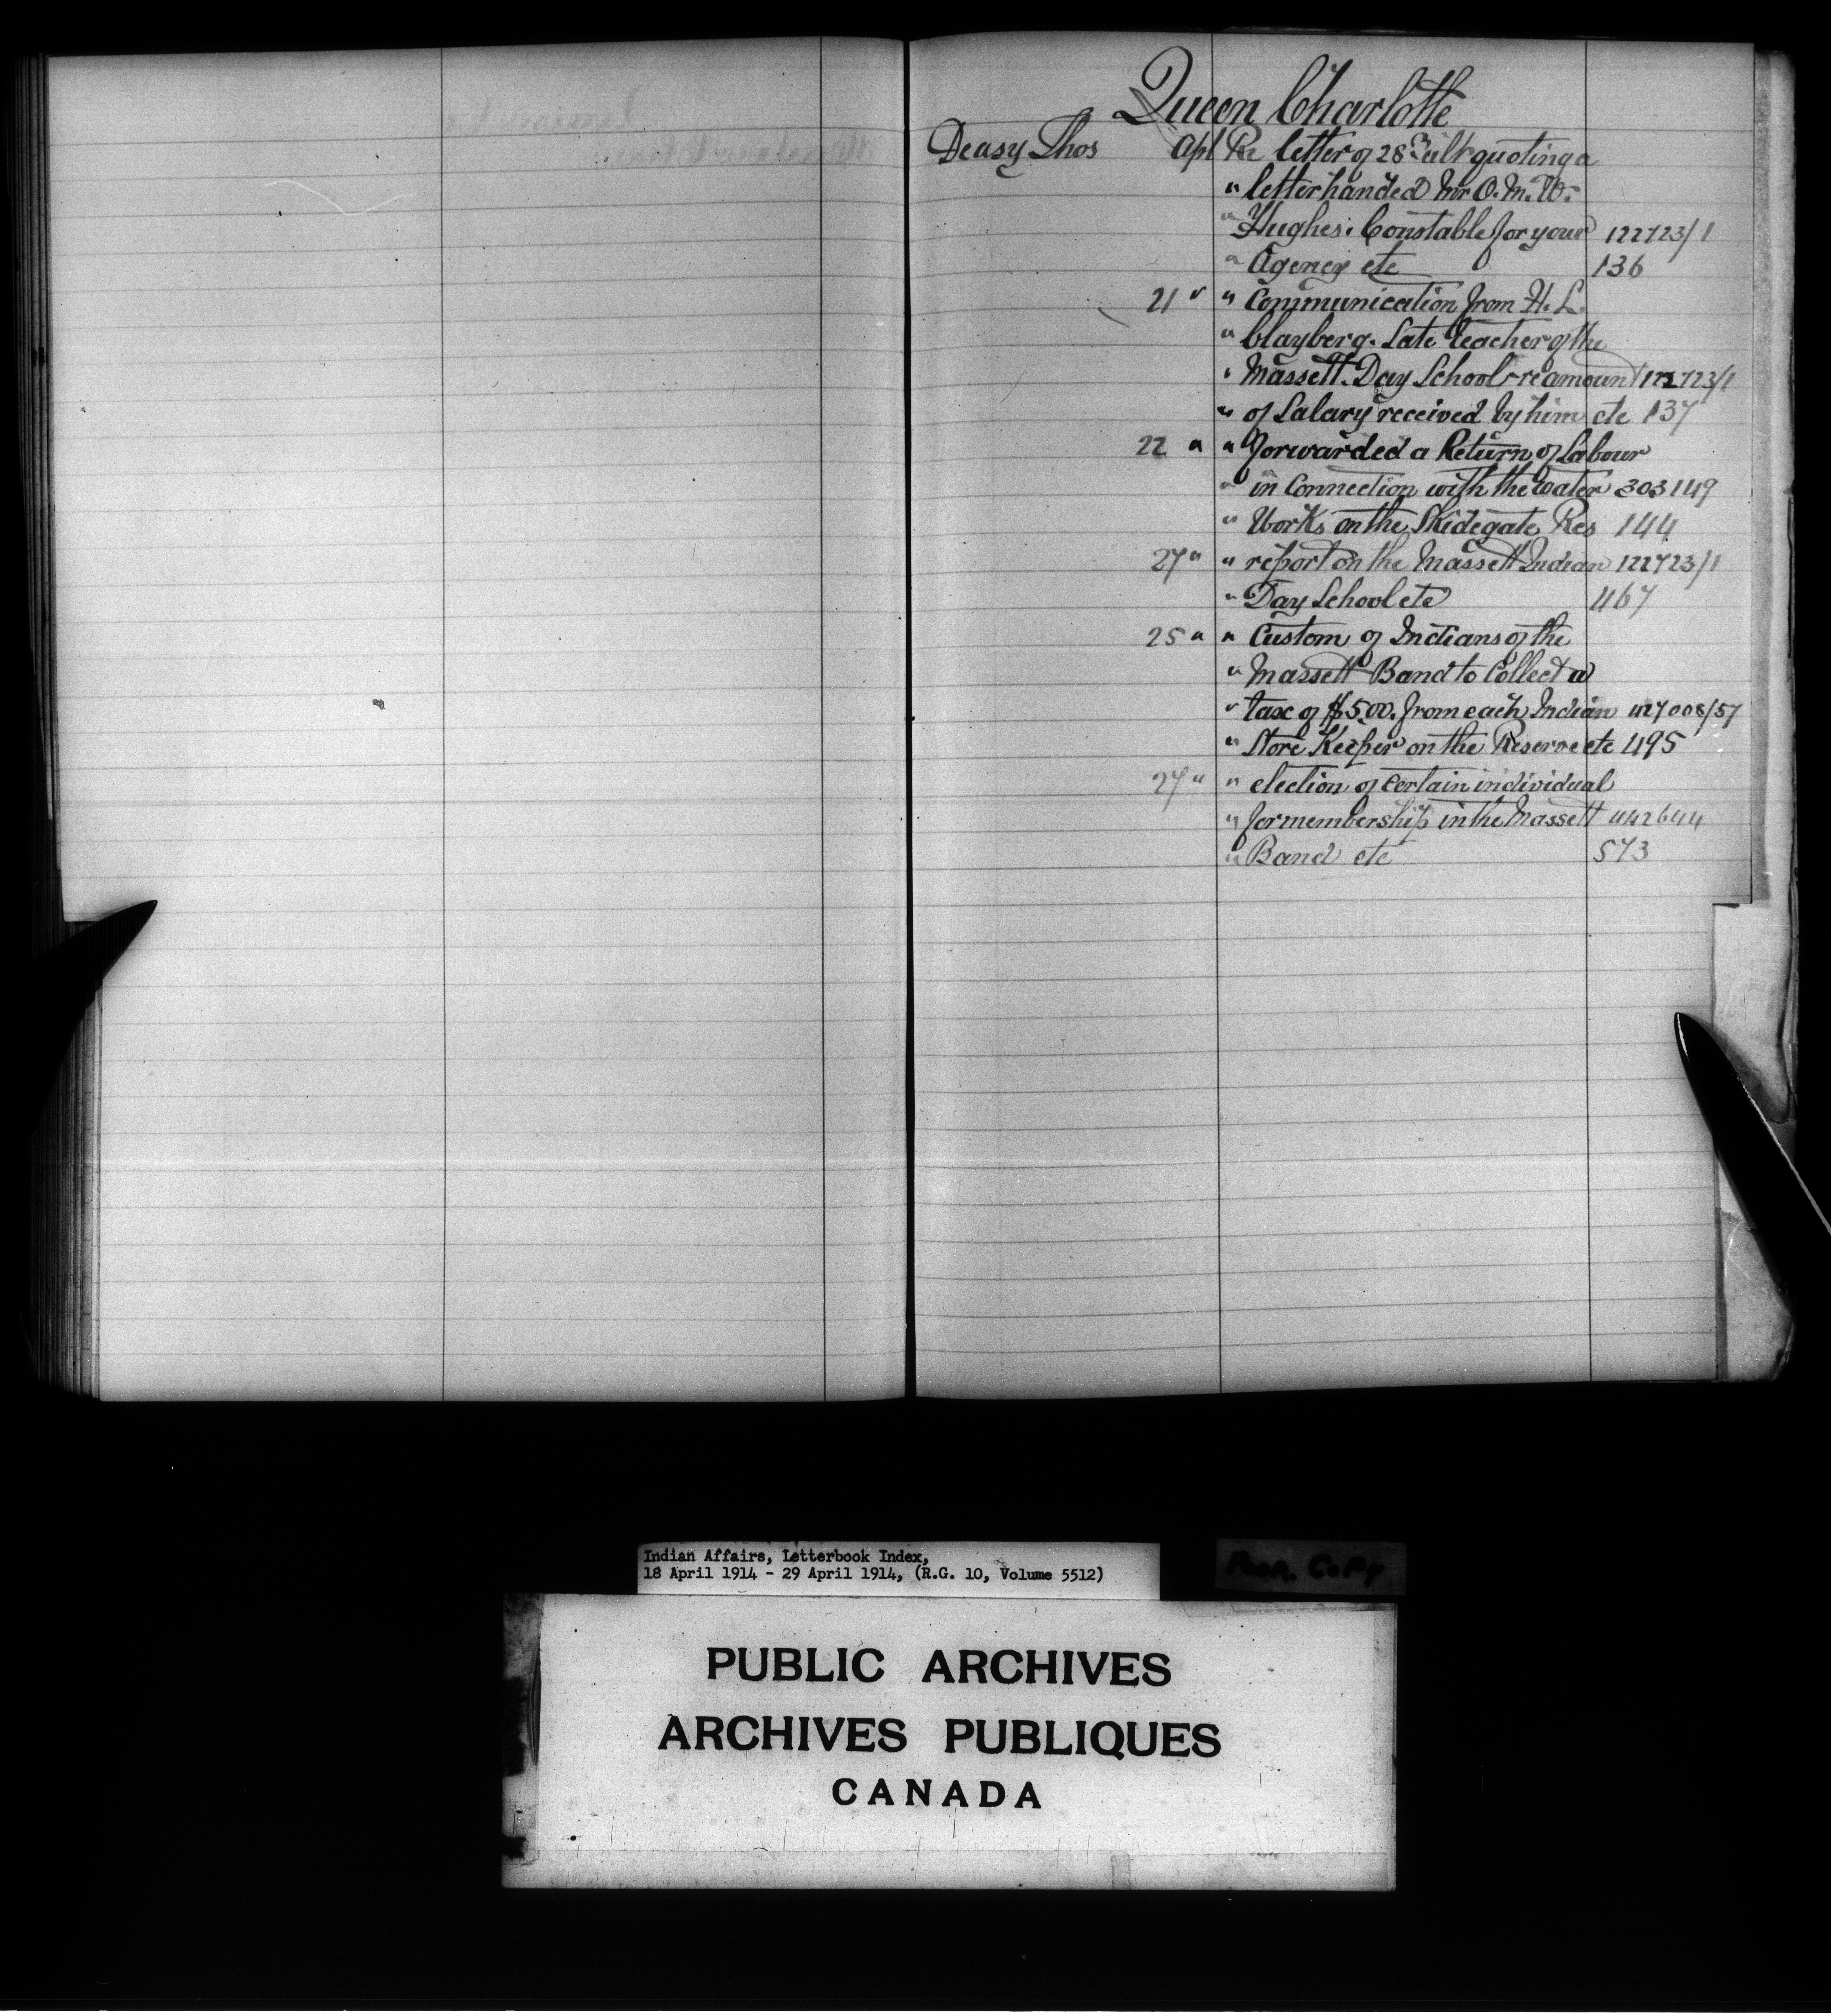 Queen Charlotte
Deasy Thos Apl Re letter of 28th ult quoting a
" letter handed Mr O. M. W.
" Hughes. Constable for your 122723/1
" Agency etc 136
21 " " Communication from H. L.
" Clayberg. Late teacher of the
" Massett. Day School - re amount 122723/1
" of Salary received by him etc 137
22 " " forwarded a Return of Labour
" in Connection with the water 303149
" Works on the Skidegate Res 144
27 " " report on the Massett Indian 122723/1
" Day School etc 467
25 " " Custom of Indians of the
" Massett Band to Collect a
" tax of $5.00. from each Indian 427008/57
" Store Keeper on the Reserve etc 495
27 " " election of certain individual
" for membership in the Massett 442644
" Band etc 573
Indian Affairs, Letterbook Index,
18 April 1914 - 29 April 1914, (R.G. 10, Volume 5512)
POOR COPY
PUBLIC ARCHIVES
ARCHIVES PUBLIQUES
CANADA